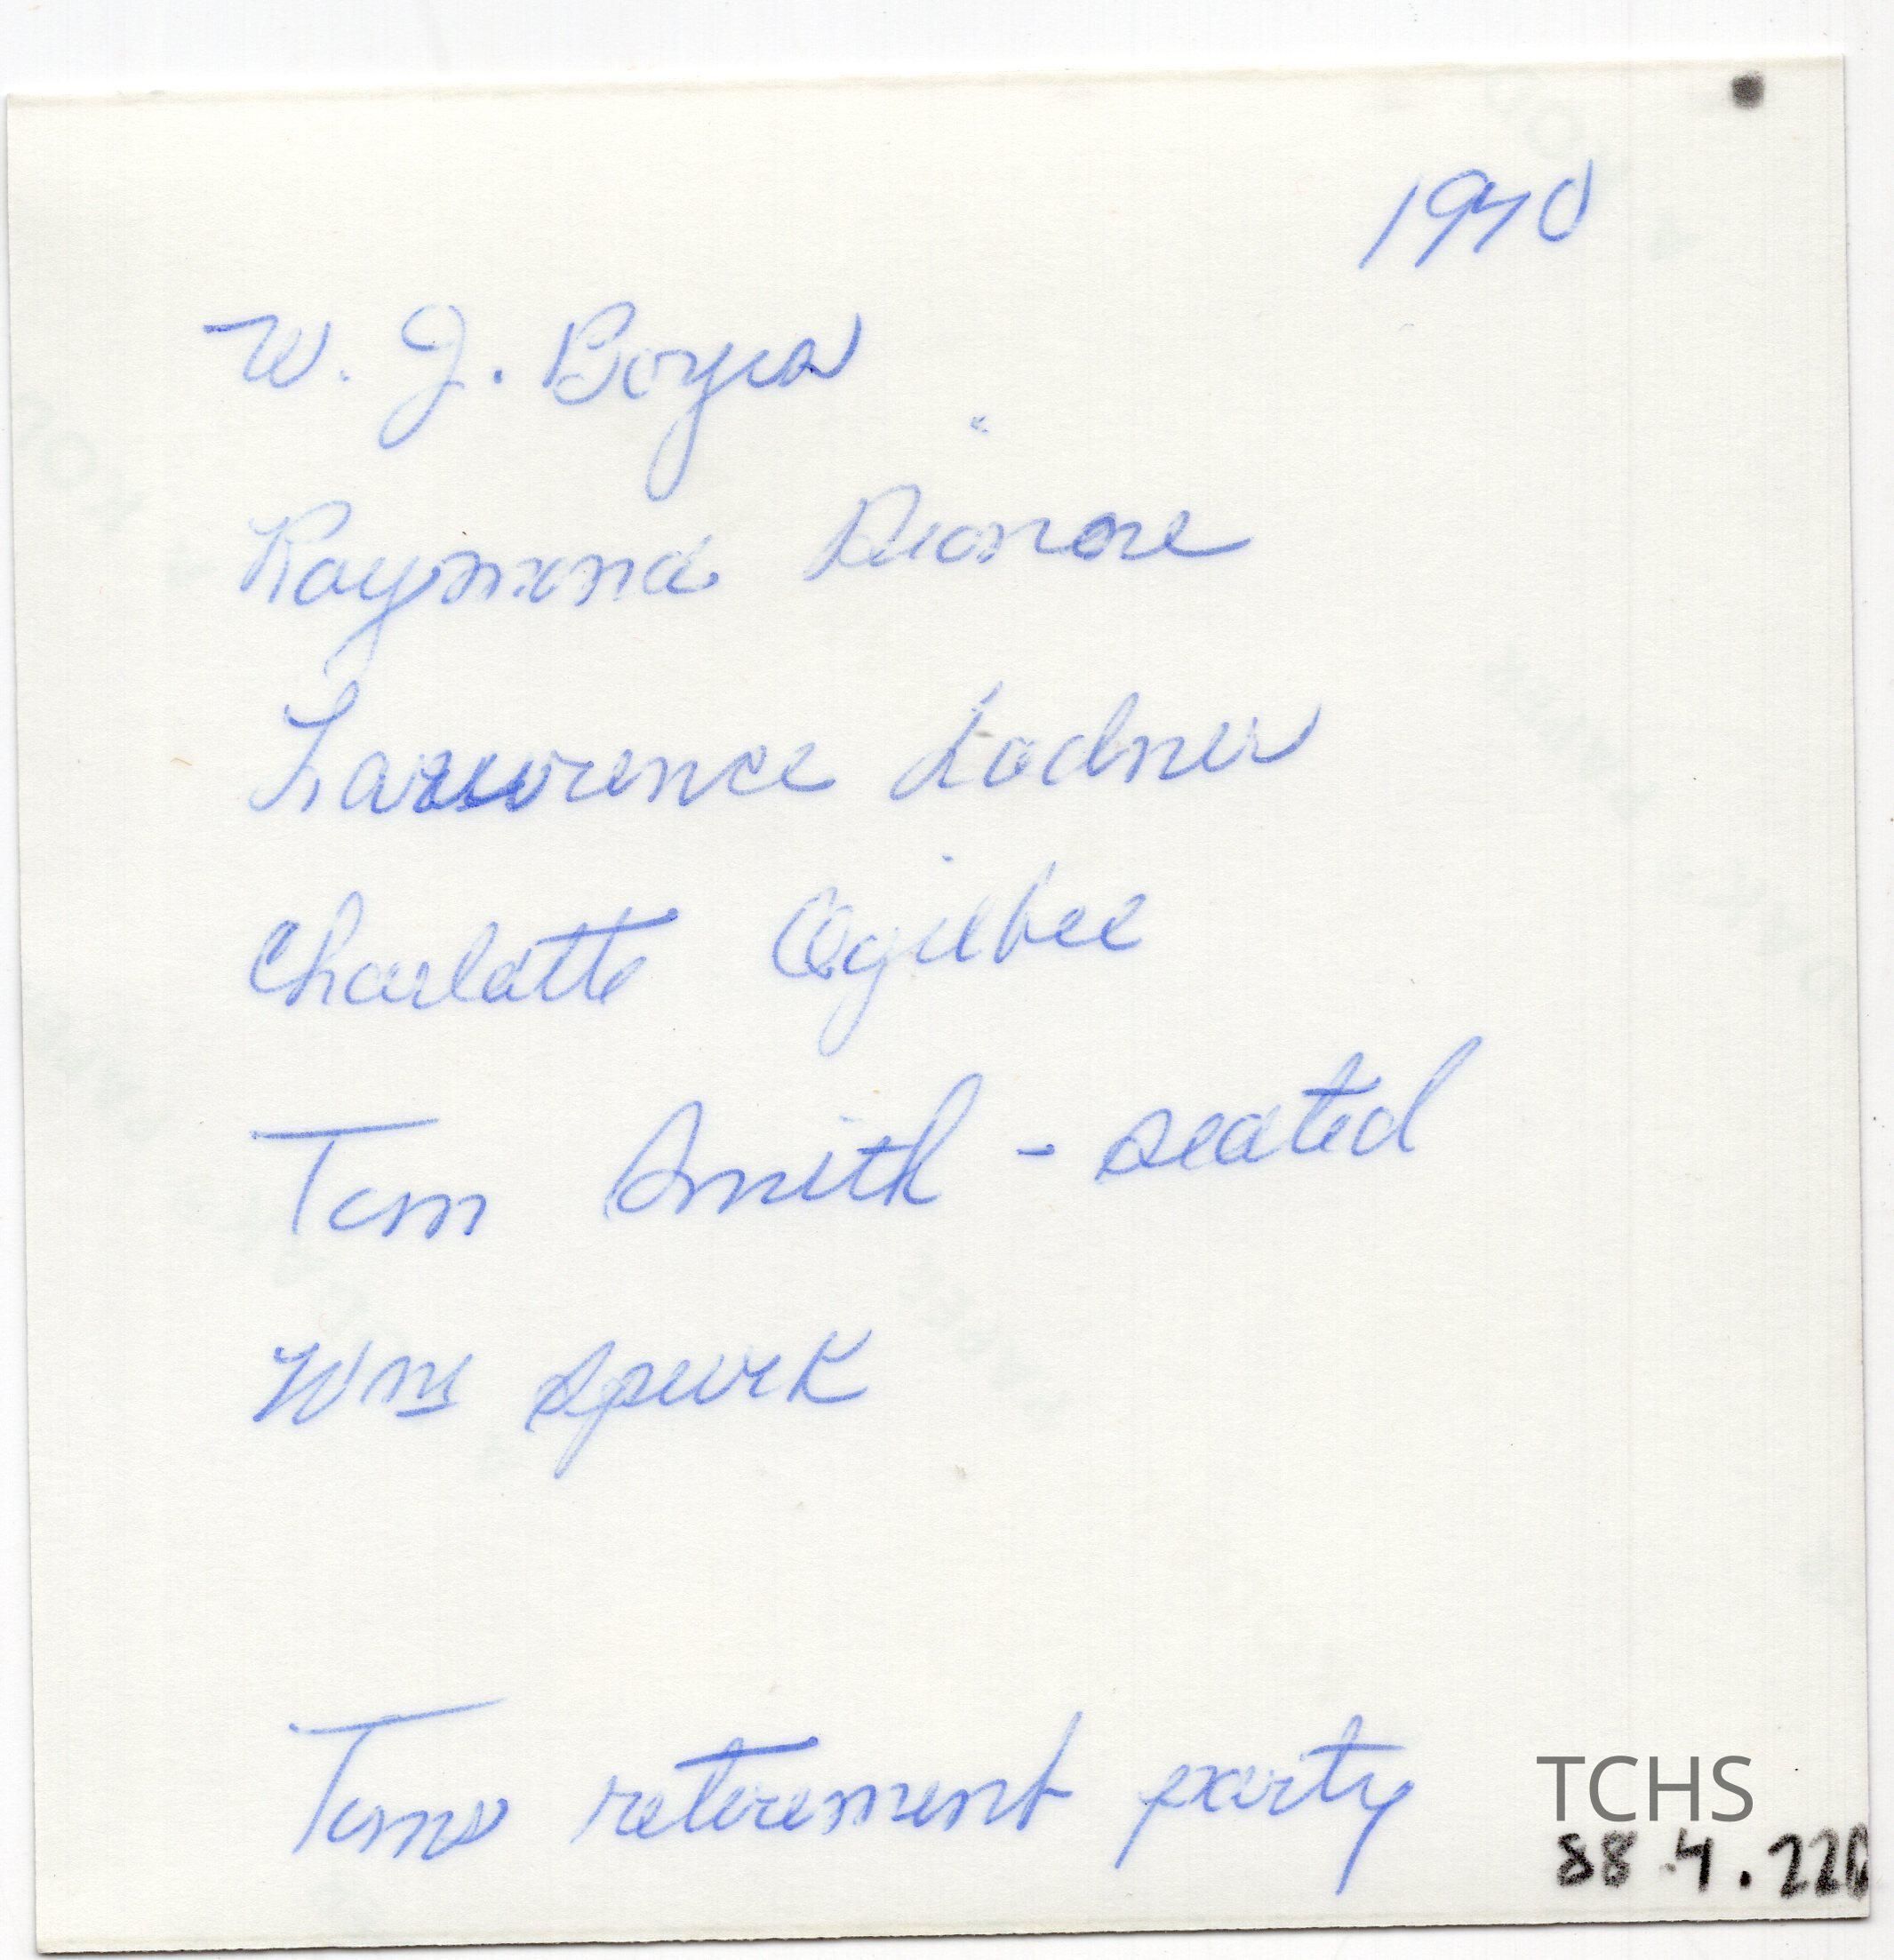 1970
W. J. Boyer
Raymond Dionne
Lawrence Ladner
Charlotte Ogilbee
Tom Smith - seated
Wm Spurk
Toms retirement party
TCHS
88.4.220